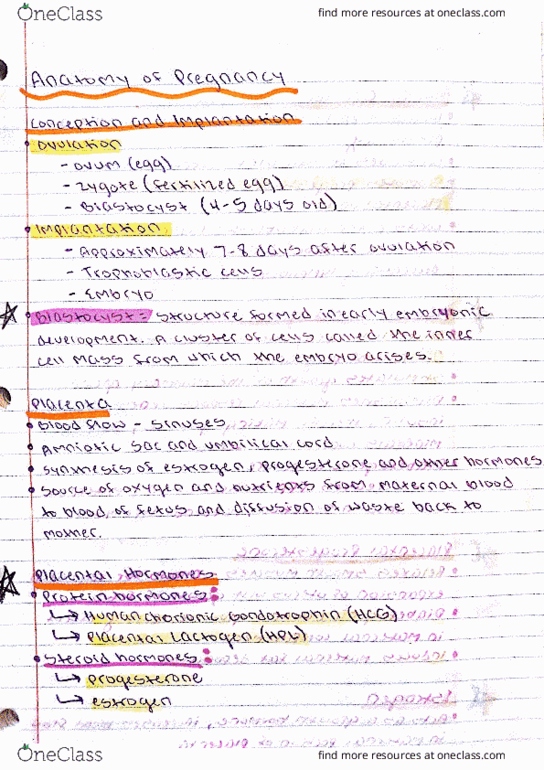 OneClass
find more resources at oneclass.com
Anatomy of Pregnancy
Conception and Implantation
• Ovulation
- Ovum (egg)
- Zygote (fertilized egg)
- Blastocyst (4-5 days old)
• Implantation
- Approximately 7-8 days after ovulation
- Trophoblastic cells
- Embryo
• Blastocyst = Structure formed in early embryonic
development. A cluster of cells called the inner
cell mass from which the embryo arises.
Placenta
• Blood flow - sinuses
• Amniotic sac and umbilical cord
• Synthesis of estrogen, progesterone and other hormones
• Source of oxygen and nutrients from maternal blood
to blood of fetus and diffusion of waste back to
mother.
Placental Hormones
• Protein hormones:
↳ Human chorionic gondotrophin (HCG)
↳ Placental Lactogen (HPL)
• Steroid hormones:
↳ progesterone
↳ estrogen
OneClass
find more resources at oneclass.com